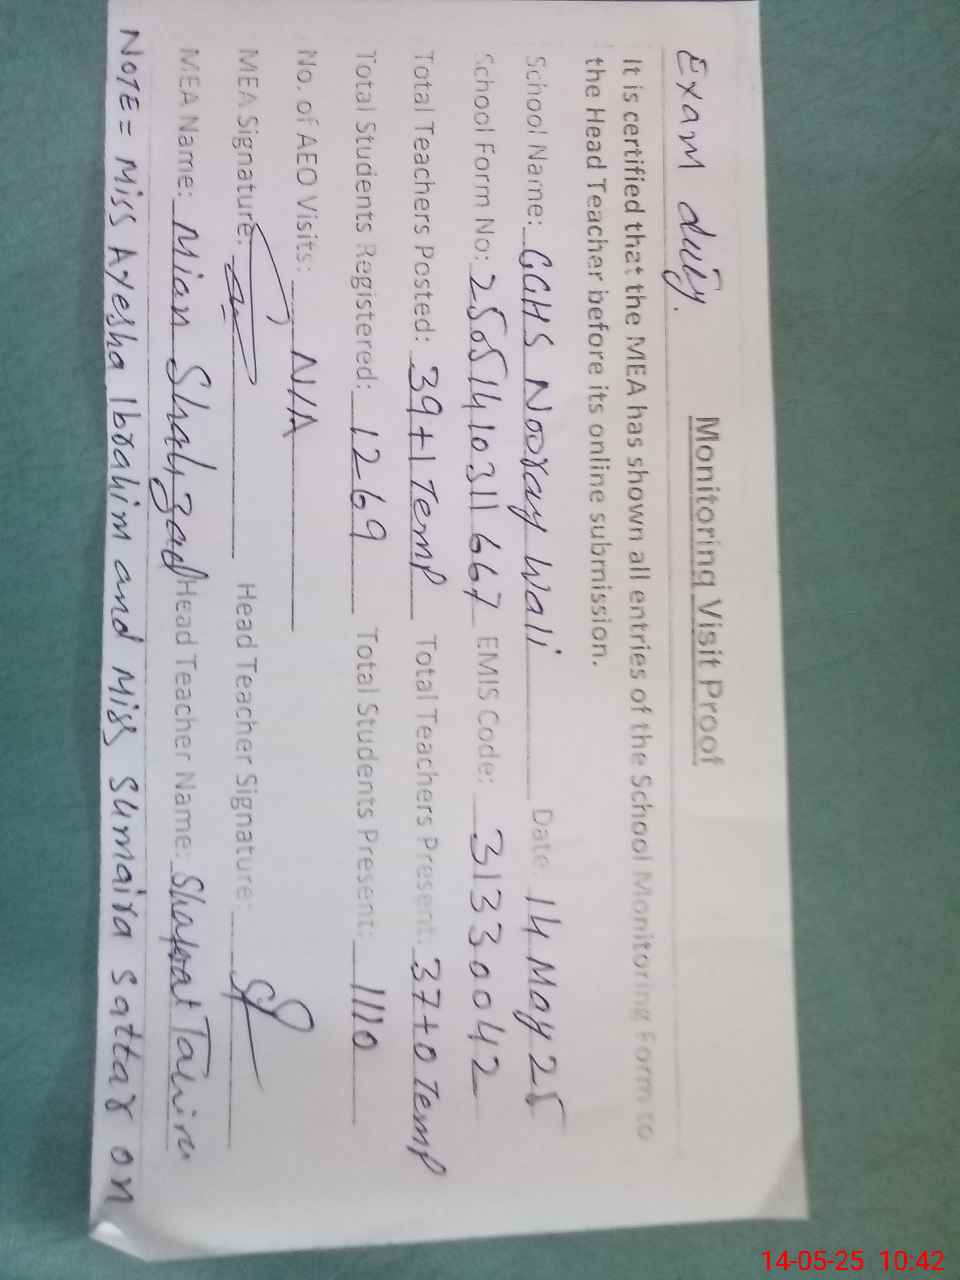 Exam duty.
Monitoring Visit Proof
It is certified that the MEA has shown all entries of the School Monitoring Form to
the Head Teacher before its online submission.
School Name: GGHS Nooray Wali Date: 14 May 25
School Form No: 25051410311667 EMIS Code: 31330042
Total Teachers Posted: 39+1 Temp Total Teachers Present: 37+0 Temp
Total Students Registered: 1269 Total Students Present: 1110
No. of AEO Visits: N/A
MEA Signature: Head Teacher Signature:
MEA Name: Mian Shahzad Head Teacher Name: Tahira
NOTE = Miss Ayesha Ibrahim and Miss Sumaira Sattar on
14-05-25 10:42